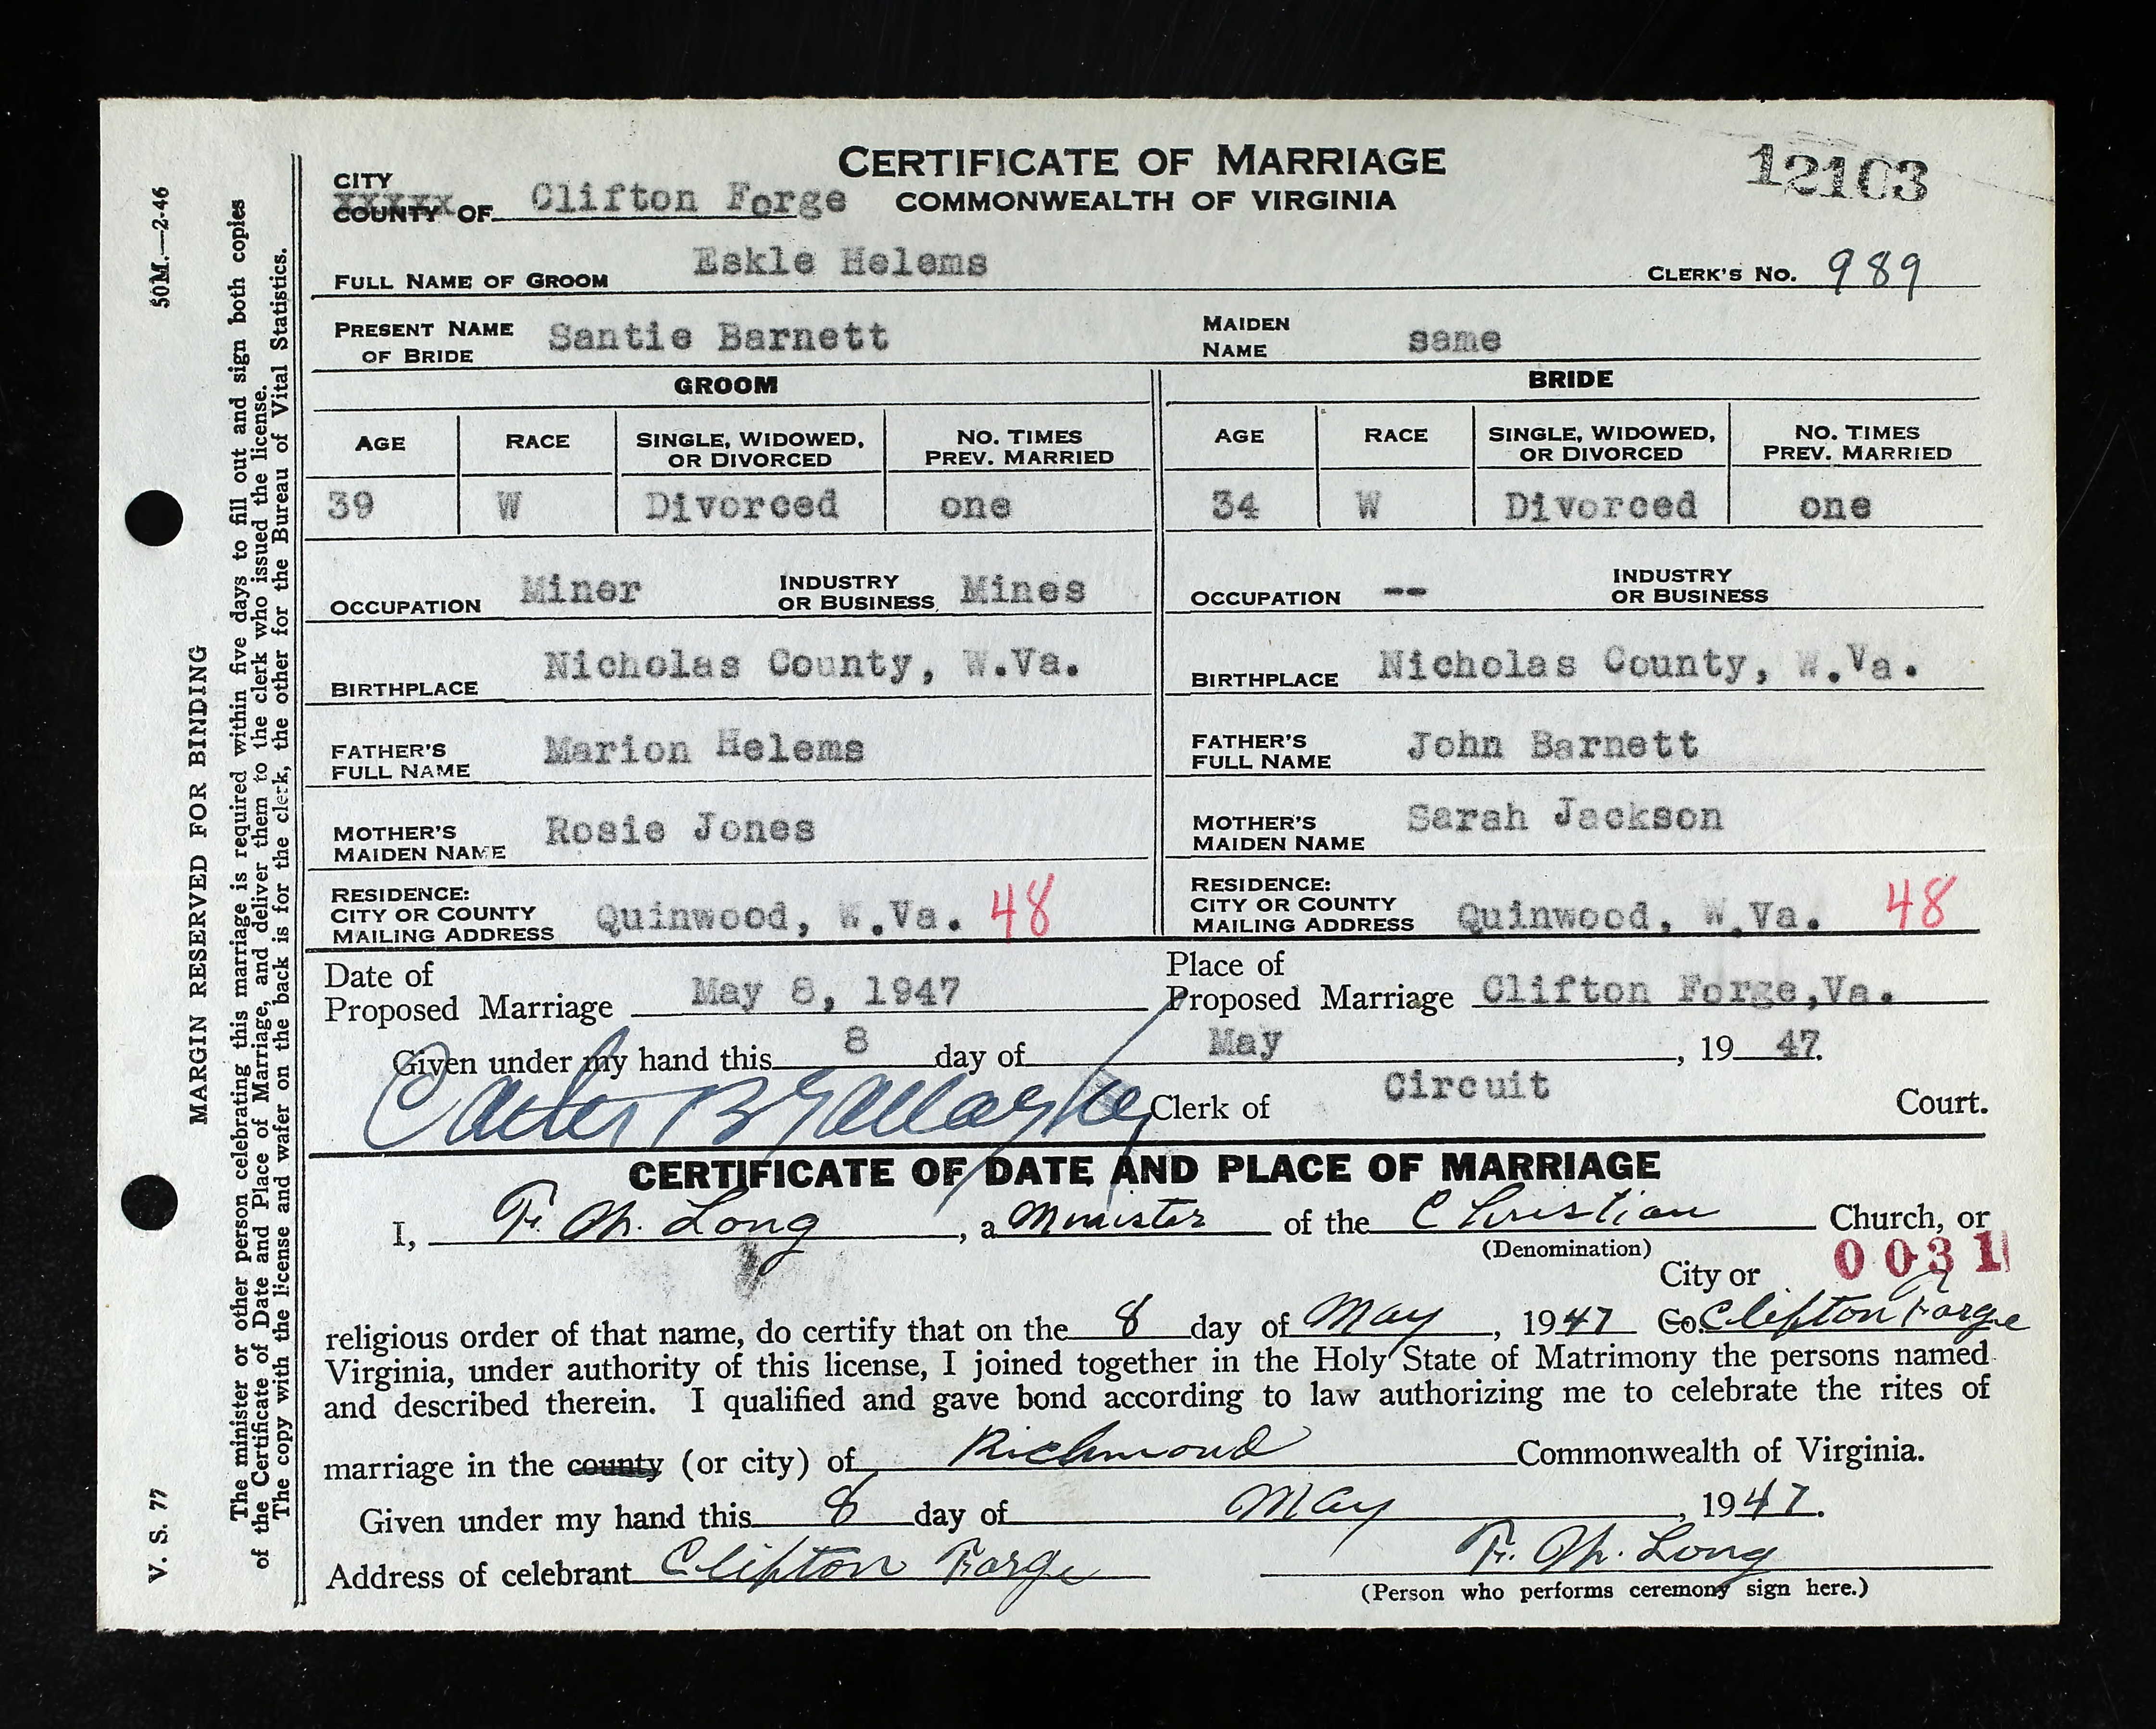 CERTIFICATE OF MARRIAGE
COMMONWEALTH OF VIRGINIA
12103
CITY
COUNTY OF Clifton Forge
FULL NAME OF GROOM Eskle Helems CLERK'S NO. 989
PRESENT NAME OF BRIDE Santie Barnett MAIDEN NAME same
GROOM BRIDE
AGE RACE SINGLE, WIDOWED, OR DIVORCED NO. TIMES PREV. MARRIED AGE RACE SINGLE, WIDOWED, OR DIVORCED NO. TIMES PREV. MARRIED
39 W Divorced one 34 W Divorced one
OCCUPATION Miner INDUSTRY OR BUSINESS Mines OCCUPATION -- INDUSTRY OR BUSINESS
BIRTHPLACE Nicholas County, W.Va. BIRTHPLACE Nicholas County, W.Va.
FATHER'S FULL NAME Marion Helems FATHER'S FULL NAME John Barnett
MOTHER'S MAIDEN NAME Rosie Jones MOTHER'S MAIDEN NAME Sarah Jackson
RESIDENCE: CITY OR COUNTY MAILING ADDRESS Quinwood, W.Va. 48 RESIDENCE: CITY OR COUNTY MAILING ADDRESS Quinwood, W.Va. 48
Date of Proposed Marriage May 8, 1947 Place of Proposed Marriage Clifton Forge,Va.
Given under my hand this 8 day of May, 19 47.
Clerk of Circuit Court.
CERTIFICATE OF DATE AND PLACE OF MARRIAGE
I, F. M. Long, a Minister of the Christian Church, or
(Denomination)
0031
City or
religious order of that name, do certify that on the 8 day of May, 1947 Co. Clifton Forge
Virginia, under authority of this license, I joined together in the Holy State of Matrimony the persons named
and described therein. I qualified and gave bond according to law authorizing me to celebrate the rites of
marriage in the county (or city) of Richmond Commonwealth of Virginia.
Given under my hand this 8 day of May, 1947.
Address of celebrant Clifton Forge F. M. Long
(Person who performs ceremony sign here.)
V. S. 77 50M.—2-46
MARGIN RESERVED FOR BINDING
The minister or other person celebrating this marriage is required within five days to fill out and sign both copies
of the Certificate of Date and Place of Marriage, and deliver them to the clerk who issued the license.
The copy with the license and wafer on the back is for the clerk, the other for the Bureau of Vital Statistics.